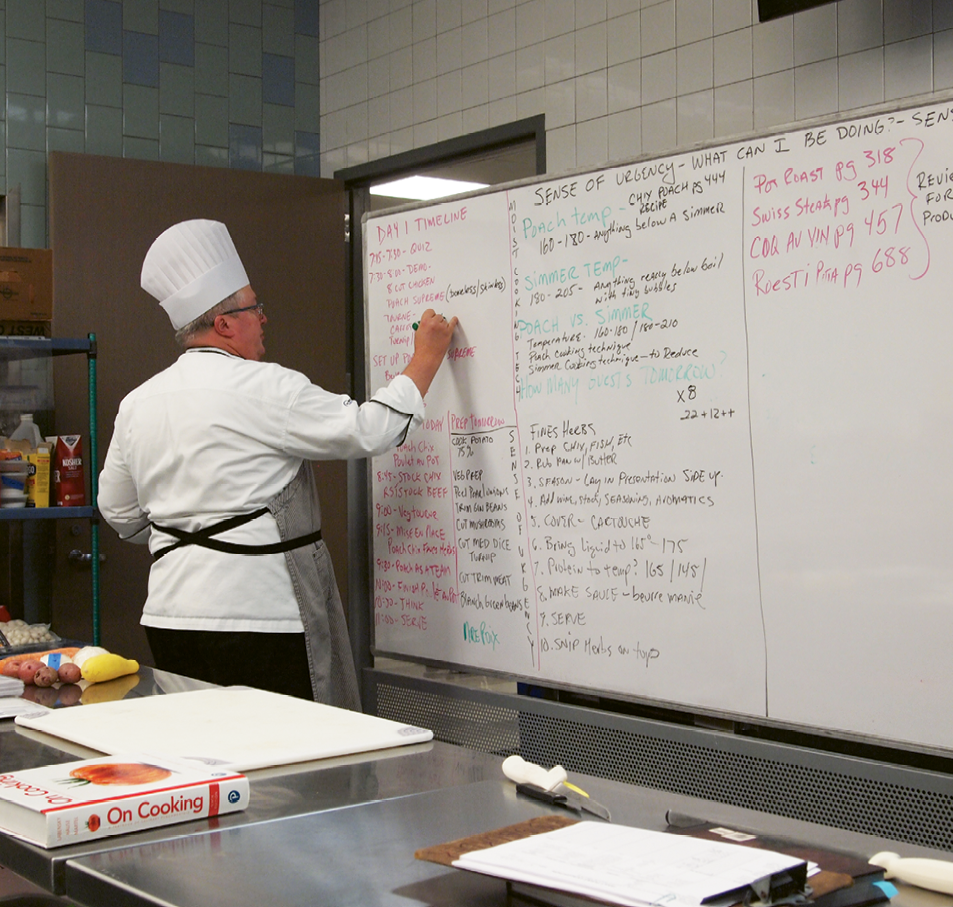 SENSE OF URGENCY - WHAT CAN I BE DOING? - SENS
DAY 1 TIMELINE
7:15-7:30 - QUIZ
7:30-8:00 - DEMO-
8 CUT CHICKEN
POACH SUPREME (boneless/skinless)
TOURNE-
SET UP
SUPREME
TODAY
Poach Chix
Poulet au Pot
8:45 - STOCK CHIX
ROAST STOCK BEEF
9:00 - Veg tourne
9:15 - MISE EN PLACE
Poach Chix Fines Herbs
9:30 - POACH AS A TEAM
10:00 -
10:30 - THINK
11:00 - SERVE
PREP TOMORROW
COOK POTATO
75%
VEG PREP
Peel Pearl onions
TRIM GRN BEANS
CUT MUSHROOMS
CUT MED DICE
TURNIP
CUT TRIM MEAT
Blanch green beans
MIREPOIX
MOIST COOKING TECH
SENSE OF URGENCY
CHIX POACH pg 444
RECIPE
Poach temp -
160-180 - Anything below A SIMMER
SIMMER TEMP -
180-205 - Anything nearly below boil
with tiny bubbles
POACH VS. SIMMER
Temperature - 160-180 / 180-210
Poach cooking technique
Simmer Cooking technique - to Reduce
How MANY GUESTS TOMORROW?
X 8
22+12++
FINES HERBS
1. Prep CHIX, FISH, Etc
2. Rub PAN w/ BUTTER
3. SEASON - LAY IN PRESENTATION SIDE UP
4. Add wine, stock, SEASONING, AROMATICS
5. COVER - CARTOUCHE
6. Bring liquid to 165° - 175
7. Protein to temp? 165 / 145 /
8. MAKE SAUCE - beurre manié
9. SERVE
10. SNIP Herbs on top
POT ROAST pg 318
Swiss Steak pg 344
COQ AU VIN pg 457
RoesTi PoTATo pg 688
REVIE
FOR
PRODU
KOSHER
WEST C
On Cooking
On Cooking
P